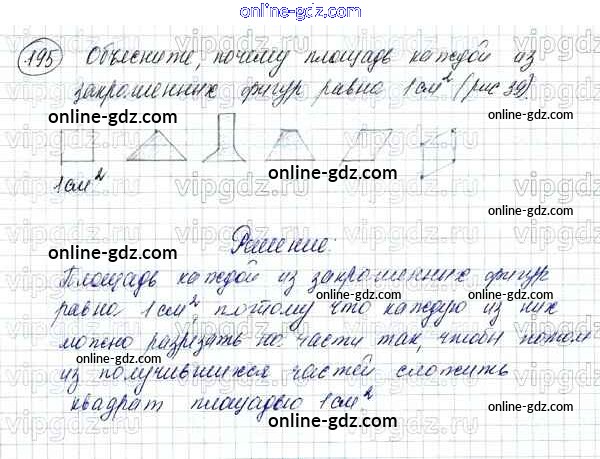 online-gdz.com
195 Объясните, почему площадь каждой из
закрашенных фигур равна 1 см² (рис 39).
online-gdz.com
online-gdz.com
online-gdz.com
1 см²
online-gdz.com
online-gdz.com
Решение:
online-gdz.com
Площадь каждой из закрашенных фигур
online-gdz.com
равна 1 см², потому что каждую из них
online-gdz.com
можно разрезать на части так, чтобы потом
online-gdz.com
из получившихся частей сложить
online-gdz.com
квадрат площадью 1 см²
online-gdz.com
online-gdz.com